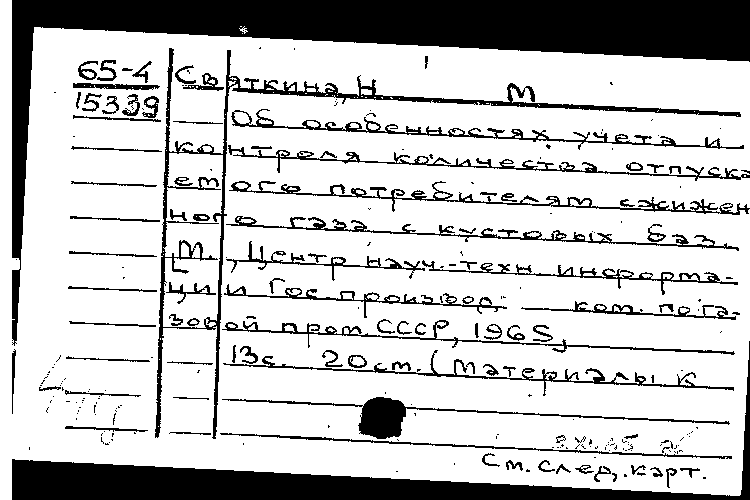 65-4 Святкина, Н М
15339
Об особенностях учета и
контроля количества отпуска
емого потребителям сжижен
ного газа с кустовых баз.
[М., Центр науч.-техн. информа-
ции Гос. производ. ком. по га-
зовой пром. СССР, 1965,
13с. 20см. (Материалы к
См. след. карт.